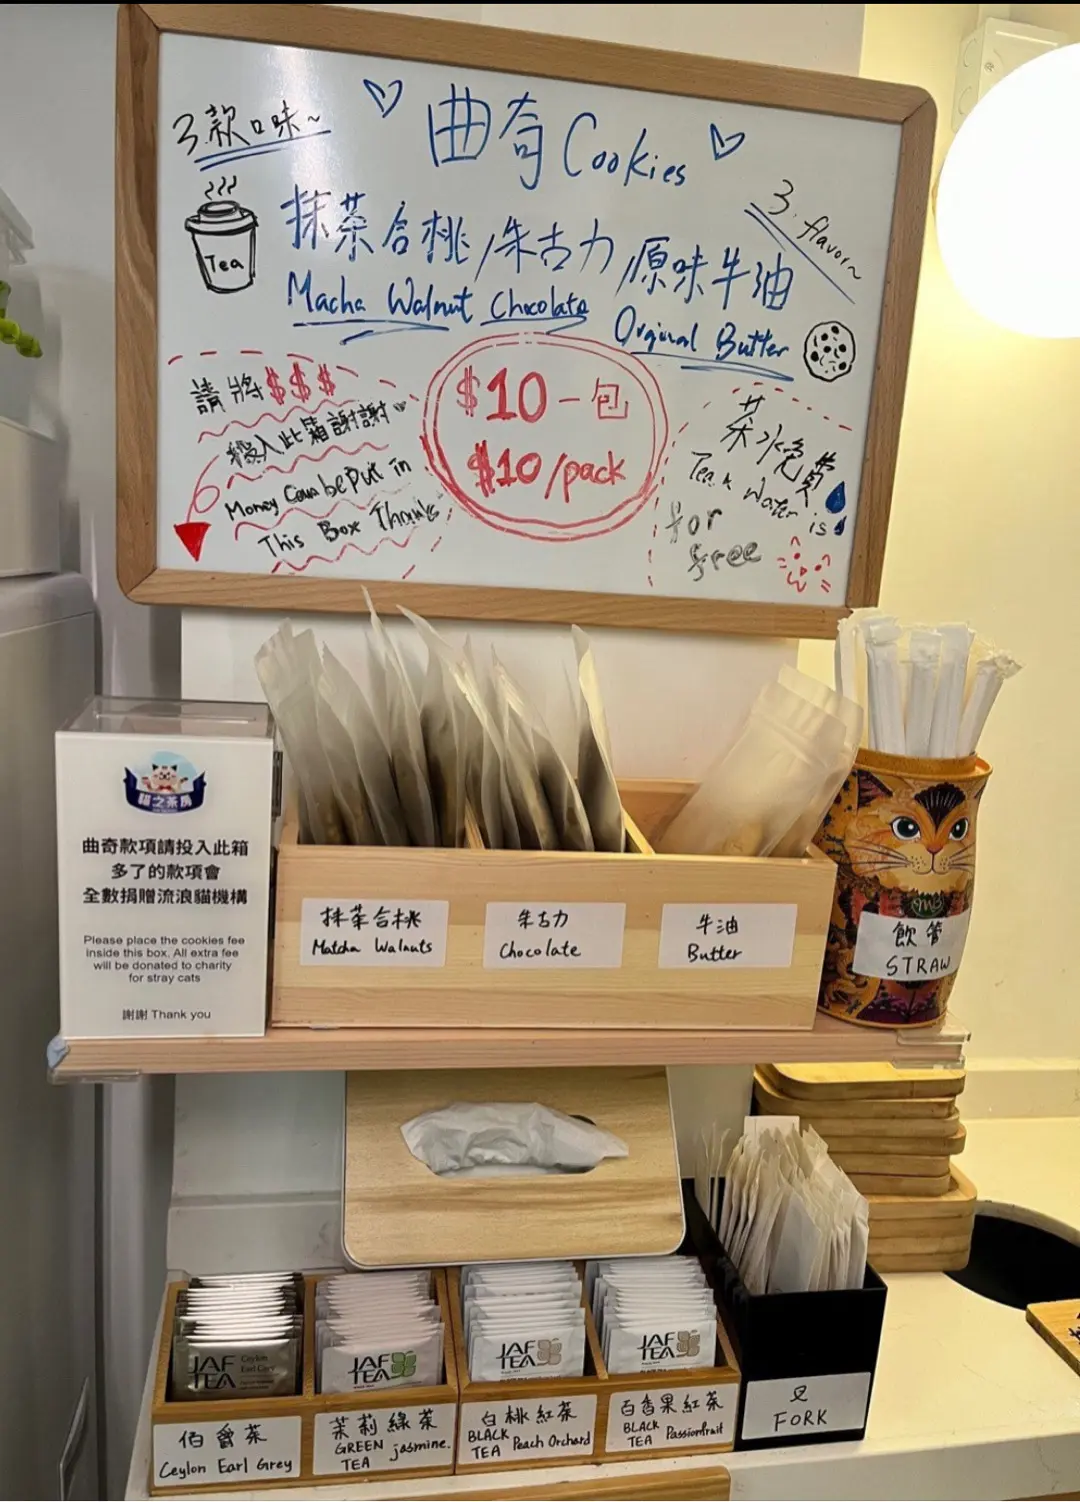 3.款口味~
曲奇 Cookies
3. flavor~
Tea
抹茶合桃/朱古力/原味牛油
Macha Walnut Chocolate Orginal Butter
請將$$$
投入此箱謝謝
Money Can be Put in
This Box Thanks
$10一包
$10/pack
茶水免費
Tea & Water is
for
free
貓之茶房
曲奇款項請投入此箱
多了的款項會
全數捐贈流浪貓機構
Please place the cookies fee
inside this box. All extra fee
will be donated to charity
for stray cats
謝謝 Thank you
抹茶合桃
Matcha Walnuts
朱古力
Chocolate
牛油
Butter
飲管
STRAW
JAF TEA
Ceylon
Earl Grey
JAF TEA
JAF TEA
JAF TEA
伯爵茶
Ceylon Earl Grey
茉莉綠茶
GREEN TEA jasmine.
白桃紅茶
BLACK TEA Peach Orchard
百香果紅茶
BLACK TEA Passionfruit
叉
FORK